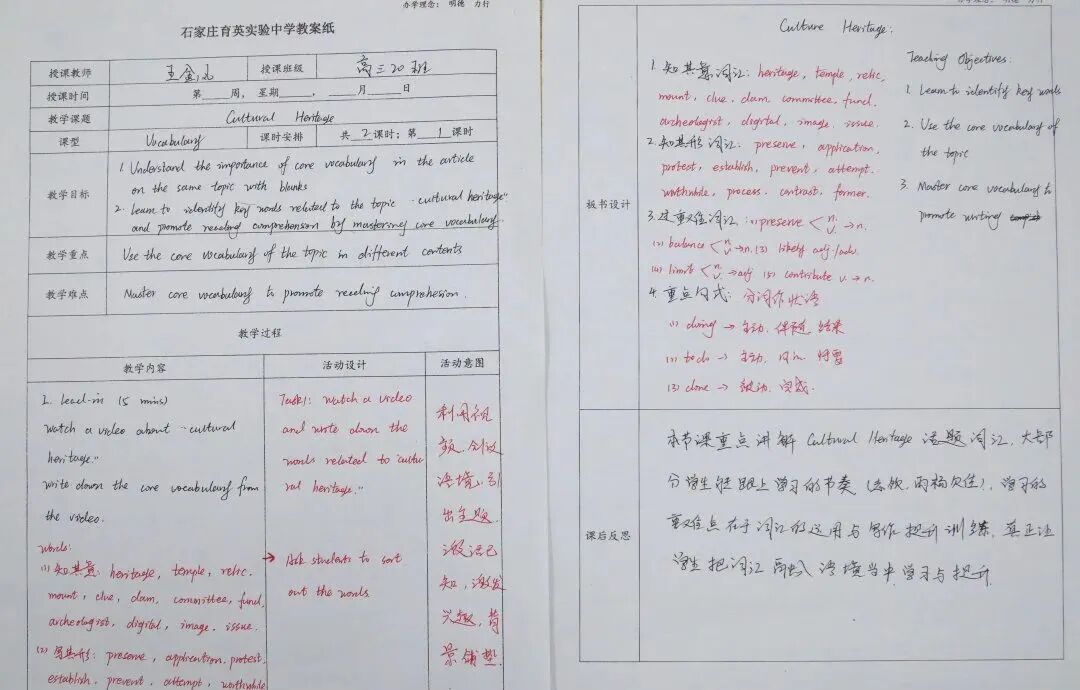 办学理念: 明德 力行
石家庄育英实验中学教案纸
授课教师 王金 授课班级 高三20班
授课时间 第 周, 星期 , 月 日
教学课题 Cultural Heritage
课型 Vocabulary 课时安排 共 2 课时; 第 1 课时
教学目标
1. Understand the importance of core vocabulary in the article
on the same topic with blanks
2. learn to identify key words related to the topic "cultural heritage"
and promote reading comprehension by mastering core vocabulary.
教学重点 Use the core vocabulary of the topic in different contents
教学难点 Master core vocabulary to promote reading comprehesion.
教学过程
教学内容 活动设计 活动意图
I. lead-in (5 mins)
watch a video about "cultural
heritage."
write down the core vocabulary from
the video.
words:
(1) 知其意: heritage, temple, relic.
mount, clue, dam, committee, fund,
archeologist, digital, image, issue.
(2) 写其形: preserve, application, protest,
establish, prevent, attempt, worthwhile
Task1: watch a video
and write down the
words related to "cultu
ral heritage."
→ Ask students to sort
out the words
利用视
频, 创设
语境, 引
出主题
激活已
知, 激发
兴趣, 背
景铺垫.
办学理念: 明德 力行
板书设计
Culture Heritage:
1. 知其意词汇: heritage, temple, relic,
mount, clue, dam, committee, fund.
archeologist, digital, image, issue.
2. 知其形词汇: preserve, application,
protest, establish, prevent, attempt.
worthwhile, process, contrast, former.
3. 过重难词汇: (1) preserve < n. v. → n.
(2) balance < n. v. → n. (3) likely adj./adv.
(4) limit < n. v. → adj (5) contribute v. → n.
4. 重点句式: 分词作状语
(1) doing → 主动, 伴随, 结果
(2) to do → 主动, 目的
(3) done → 被动, 完成.
Teaching Objectives:
1. Learn to identify key words
2. Use the core vocabulary of
the topic
3. Master core vocabulary to
promote writing
课后反思
本节课重点讲解 Cultural Heritage 话题词汇, 大部
分学生能跟上学习的节奏 . 学习的
重难点在于词汇的运用与写作提升训练, 真正让
学生把词汇融入语境当中学习与提升.